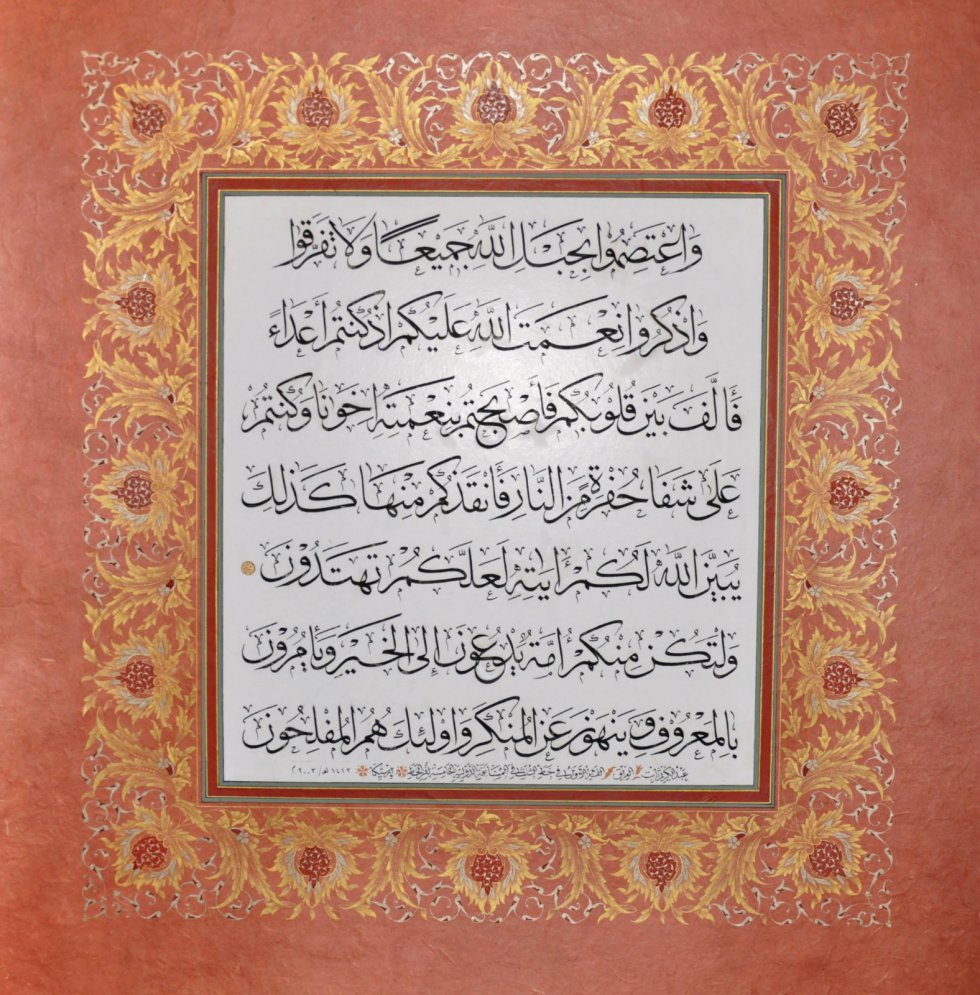 وَاعْتَصِمُوا بِحَبْلِ اللَّهِ جَمِيعًا وَلَا تَفَرَّقُوا
وَاذْكُرُوا نِعْمَتَ اللَّهِ عَلَيْكُمْ إِذْ كُنْتُمْ أَعْدَاءً
فَأَلَّفَ بَيْنَ قُلُوبِكُمْ فَأَصْبَحْتُمْ بِنِعْمَتِهِ إِخْوَٰنًا وَكُنْتُمْ
عَلَىٰ شَفَا حُفْرَةٍ مِنَ النَّارِ فَأَنْقَذَكُمْ مِنْهَا كَذَٰلِكَ
يُبَيِّنُ اللَّهُ لَكُمْ ءَايَٰتِهِ لَعَلَّكُمْ تَهْتَدُونَ
وَلْتَكُنْ مِنْكُمْ أُمَّةٌ يَدْعُونَ إِلَى الْخَيْرِ وَيَأْمُرُونَ
بِالْمَعْرُوفِ وَيَنْهَوْنَ عَنِ الْمُنْكَرِ وَأُولَٰئِكَ هُمُ الْمُفْلِحُونَ